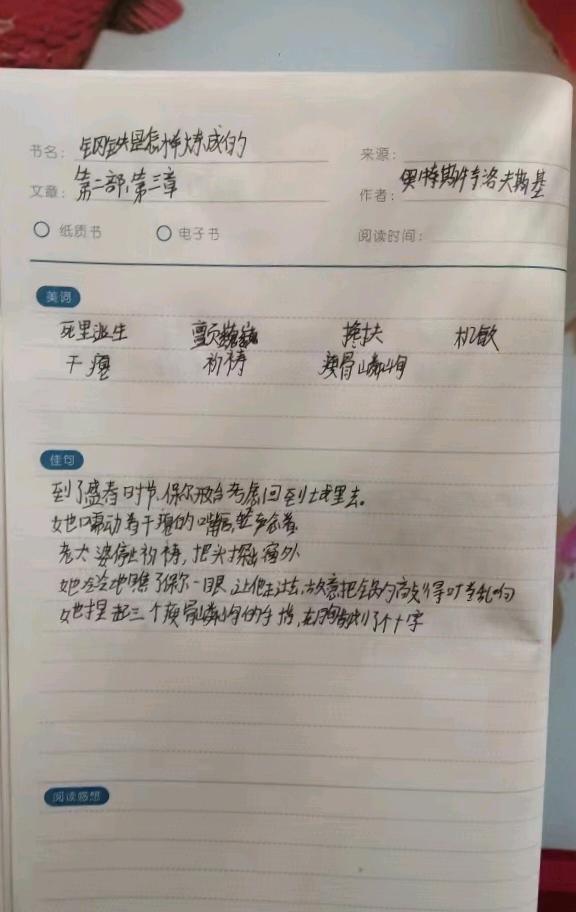 书名：钢铁是怎样炼成的
来源：
文章：第二部：第三章
作者：奥斯特洛夫斯基
纸质书 电子书 阅读时间：
美词
死里逃生 颤颤巍巍 搀扶 机敏
干瘪 祈祷 瘦骨嶙峋
佳句
到了盛春时节，保尔开始考虑回到城里去。
她嚅动着干瘪的嘴唇，念着
老太婆停止祈祷，把头探出窗外
她冷冷地瞧了保尔一眼，让他走过去，故意把锅勺敲得叮当乱响
她捏起三个瘦骨嶙峋的手指，在胸前划了个十字
阅读感想